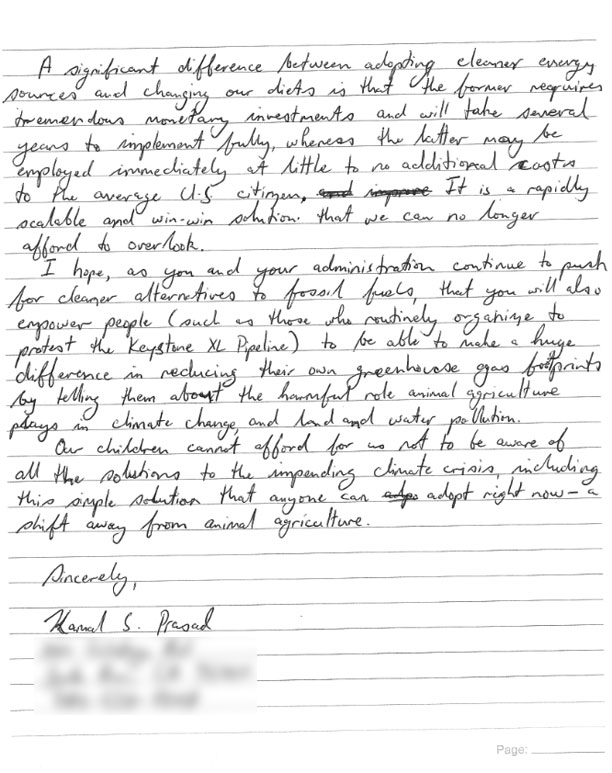 A significant difference between adopting cleaner energy
sources and changing our diets is that the former requires
tremendous monetary investments and will take several
years to implement fully, whereas the latter may be
employed immediately at little to no additional costs
to the average U.S. citizen, and improve It is a rapidly
scalable and win-win solution. that we can no longer
afford to overlook.
I hope, as you and your administration continue to push
for cleaner alternatives to fossil fuels, that you will also
empower people (such as those who routinely organize to
protest the Keystone XL Pipeline) to be able to make a huge
difference in reducing their own greenhouse ggas footprints
by telling them about the harmful role animal agriculture
plays in climate change, and land and water pollution.
Our children cannot afford for us not to be aware of
all the solutions to the impending climate crisis including
this simple solution that anyone can adop adopt right now – a
shift away from animal agriculture.
Sincerely,
Kamal S. Prasad
Page: